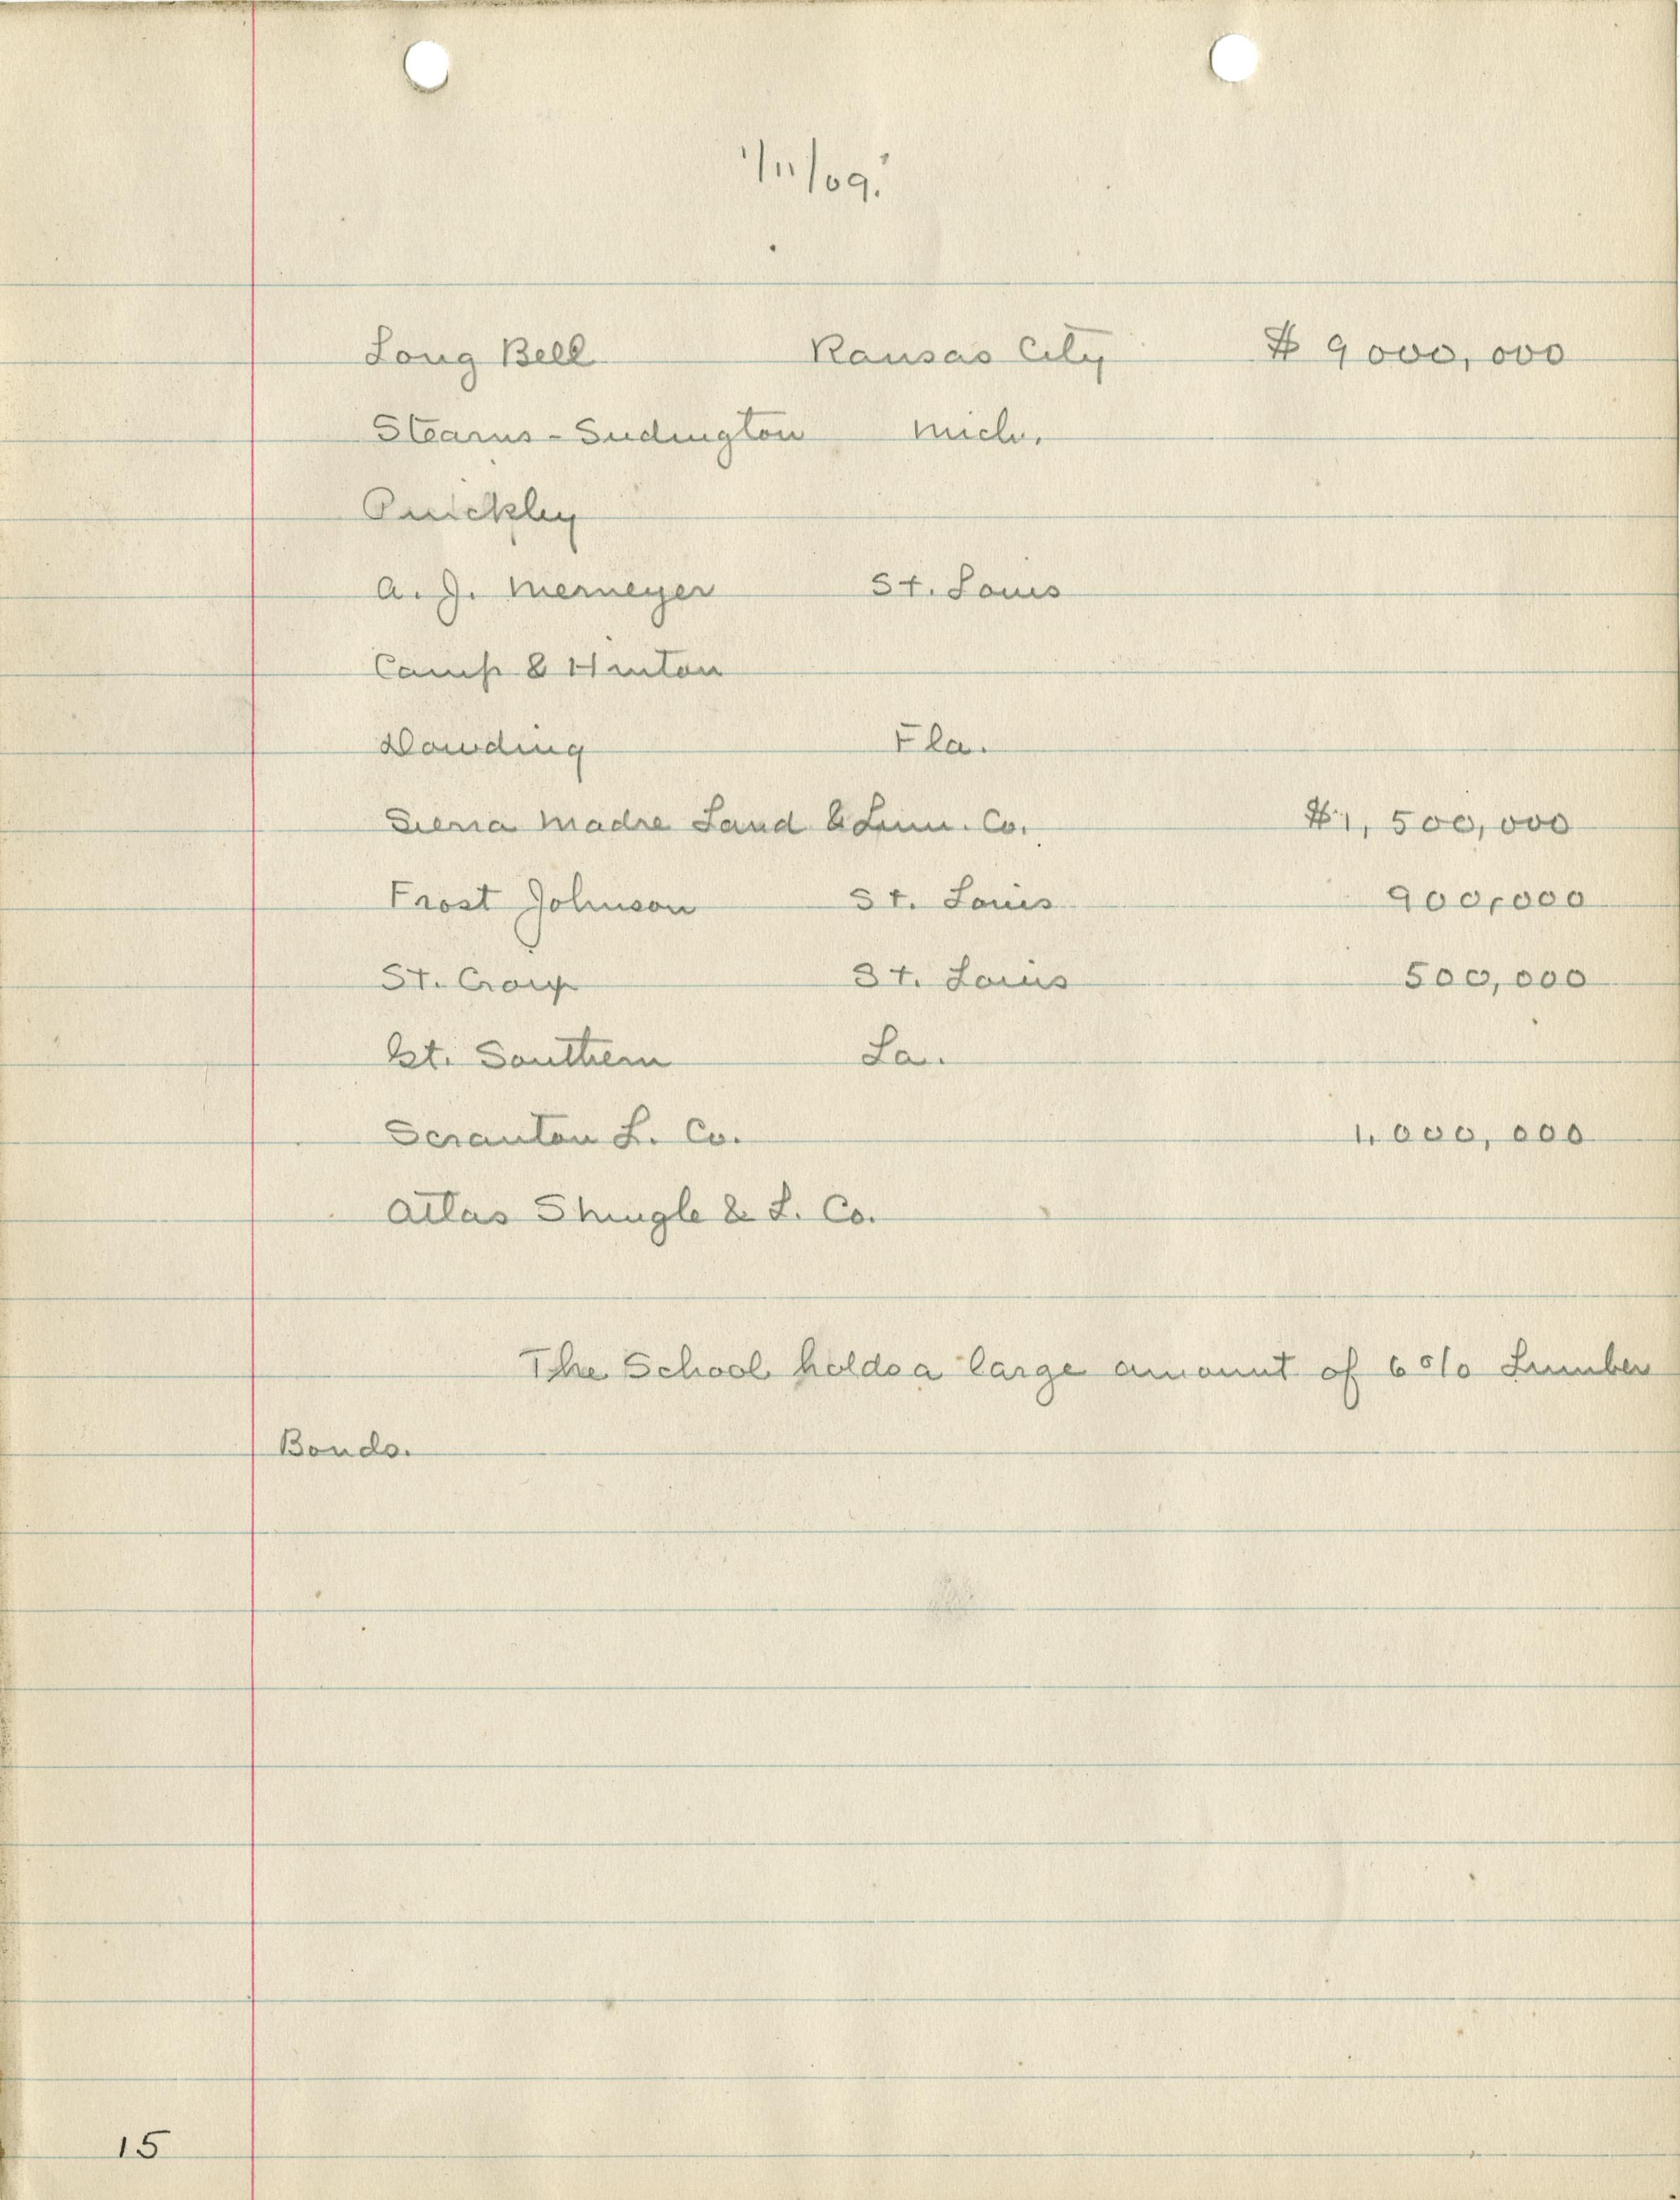 1/11/09.
Long Bell Kansas City $ 9000,000
Stearns-Ludington Mich.
A. J. St. Louis
Camp & Hinton
Dowding Fla.
Sierra Madre Land & Lum. Co. $1,500,000
Frost Johnson St. Louis 900,000
St. Croix St. Louis 500,000
Gt. Southern La.
Scranton L. Co. 1,000,000
Atlas Shingle & L. Co.
The School holds a large amount of 6% Lumber
Bonds.
15